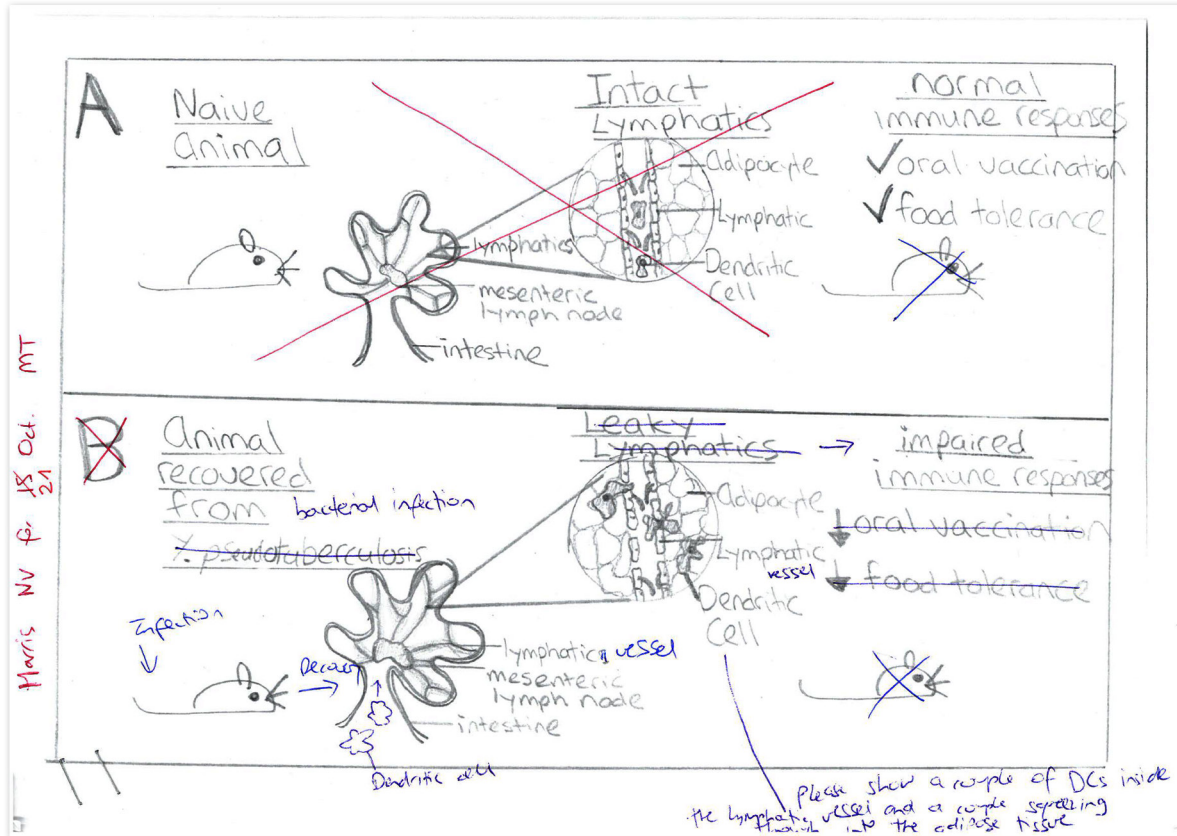 A
Naive
animal
Intact
Lymphatics
normal
immune responses
✓ oral vaccination
✓ food tolerance
adipocyte
Lymphatic
Dendritic
Cell
lymphatics
mesenteric
lymph node
intestine
Harris NV for 18 Oct. MT
21
B
animal
recovered
from bacterial infection
Y. pseudotuberculosis
Leaky
Lymphatics →
impaired
immune responses
↓ oral vaccination
↓ food tolerance
Adipocyte
Lymphatic
vessel
Dendritic
Cell
Infection
lymphatic vessel
mesenteric
lymph node
intestine
Dendritic cell
Please show a couple of DCs inside
the lymphatic vessel and a couple squeezing
through into the adipose tissue